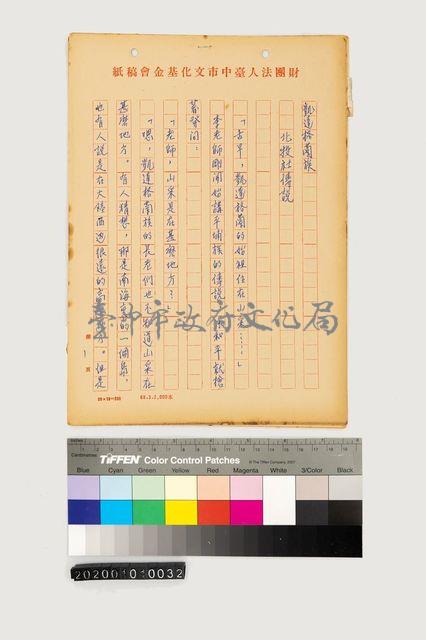 財團法人臺中市文化基金會稿紙
凱達格蘭族
北投社傳說
「古早，凱達格蘭的始祖住在山
李老師剛開始講平埔族的傳說
發問：
「老師，山采是在甚麼地方？」
「嗯，凱達格蘭族的長老們也不知道山采在
甚麼地方。有人猜想，那是南海的一個島，
也有人說是在大陸西邊很遠的高　。但是
第 1 頁
臺中市政府文化局
TIFFEN Color Control Patches
© The Tiffen Company, 2007
Blue Cyan Green Yellow Red Magenta White 3/Color Black
202001010032